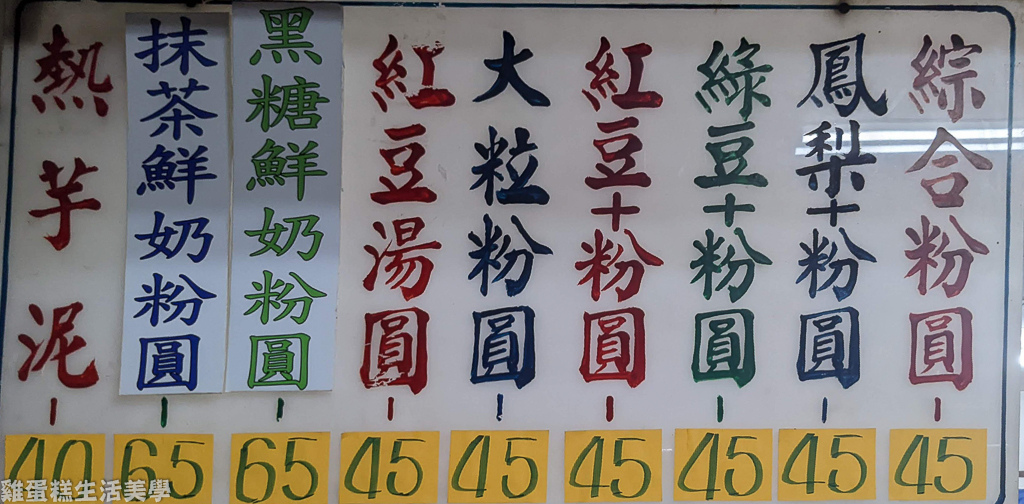 綜合粉圓-45
鳳梨+粉圓-45
綠豆+粉圓-45
紅豆+粉圓-45
大粒粉圓-45
紅豆湯圓-45
黑糖鮮奶粉圓-65
抹茶鮮奶粉圓-65
熱芋泥-40
雞蛋糕生活美學